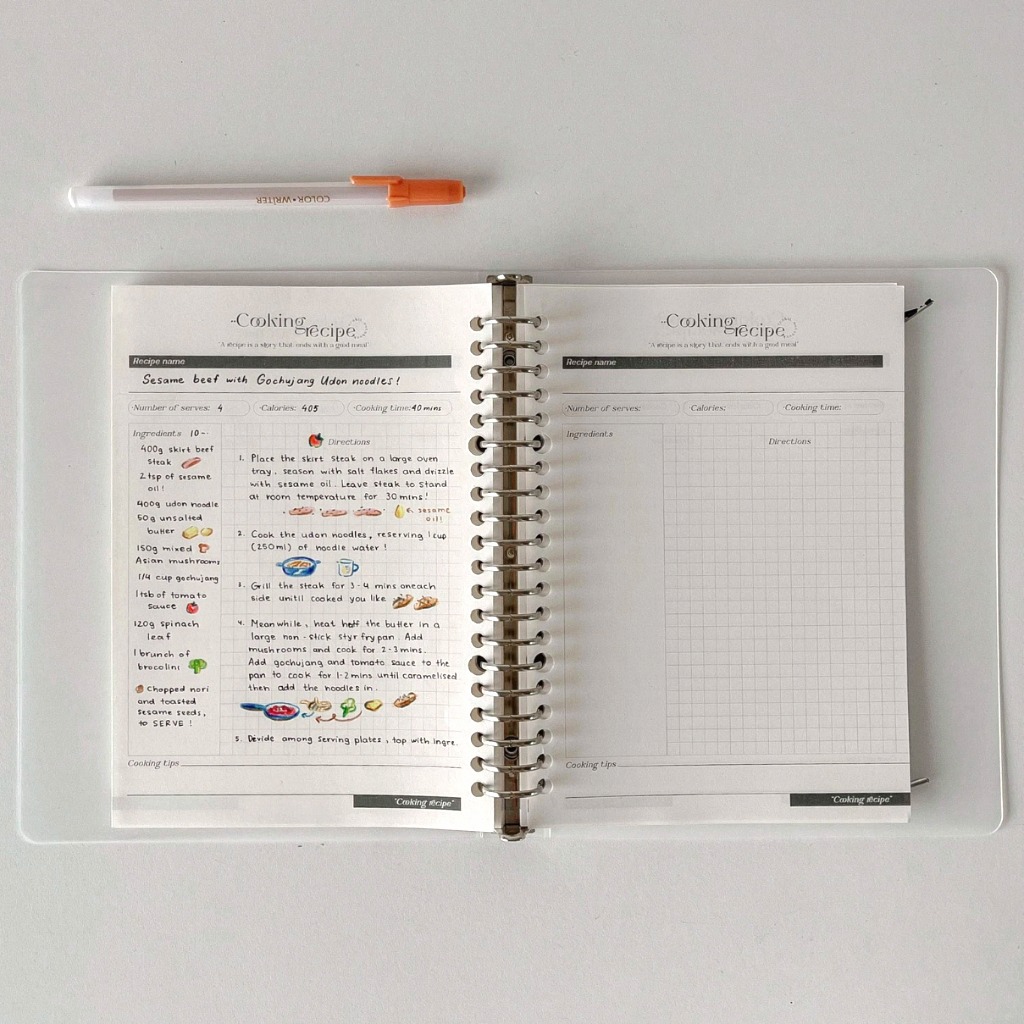 COLOR•WRITER
Cooking
recipe
"A recipe is a story that ends with a good meal"
Recipe name
Sesame beef with Gochujang Udon noodles!
Number of serves: 4
Calories: 405
Cooking time: 40 mins
Ingredients 10~
400g skirt beef
steak
2 tsp of sesame
oil!
400g udon noodle
50g unsalted
butter
150g mixed
Asian mushrooms
1/4 cup gochujang
1 tsb of tomato
sauce
120g spinach
leaf
1 brunch of
brocolini
Chopped nori
and toasted
sesame seeds,
to SERVE!
Directions
1. Place the skirt steak on a large oven
tray. season with salt flakes and drizzle
with sesame oil. Leave steak to stand
at room temperature for 30 mins!
sesame
oil!
2. Cook the udon noodles, reserving 1 cup
(250ml) of noodle water!
3. Grill the steak for 3-4 mins oneach
side untill cooked you like
4. Meanwhile, heat half the butter in a
large non-stick styr frypan. Add
mushrooms and cook for 2-3 mins.
Add gochujang and tomato sauce to the
pan to cook for 1-2 mins until caramelised
then add the noodles in.
5. Devide among serving plates, top with ingre.
Cooking tips
"Cooking recipe"
Cooking
recipe
"A recipe is a story that ends with a good meal"
Recipe name
Number of serves:
Calories:
Cooking time:
Ingredients
Directions
Cooking tips
"Cooking recipe"